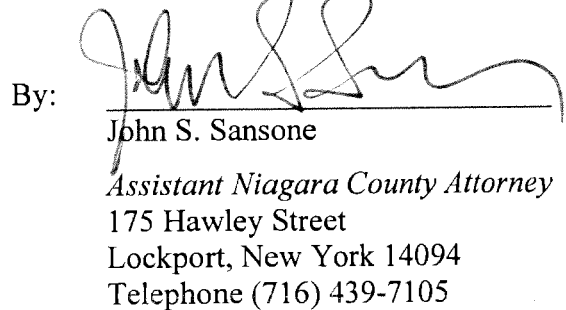 By:
John S. Sansone
Assistant Niagara County Attorney
175 Hawley Street
Lockport, New York 14094
Telephone (716) 439-7105